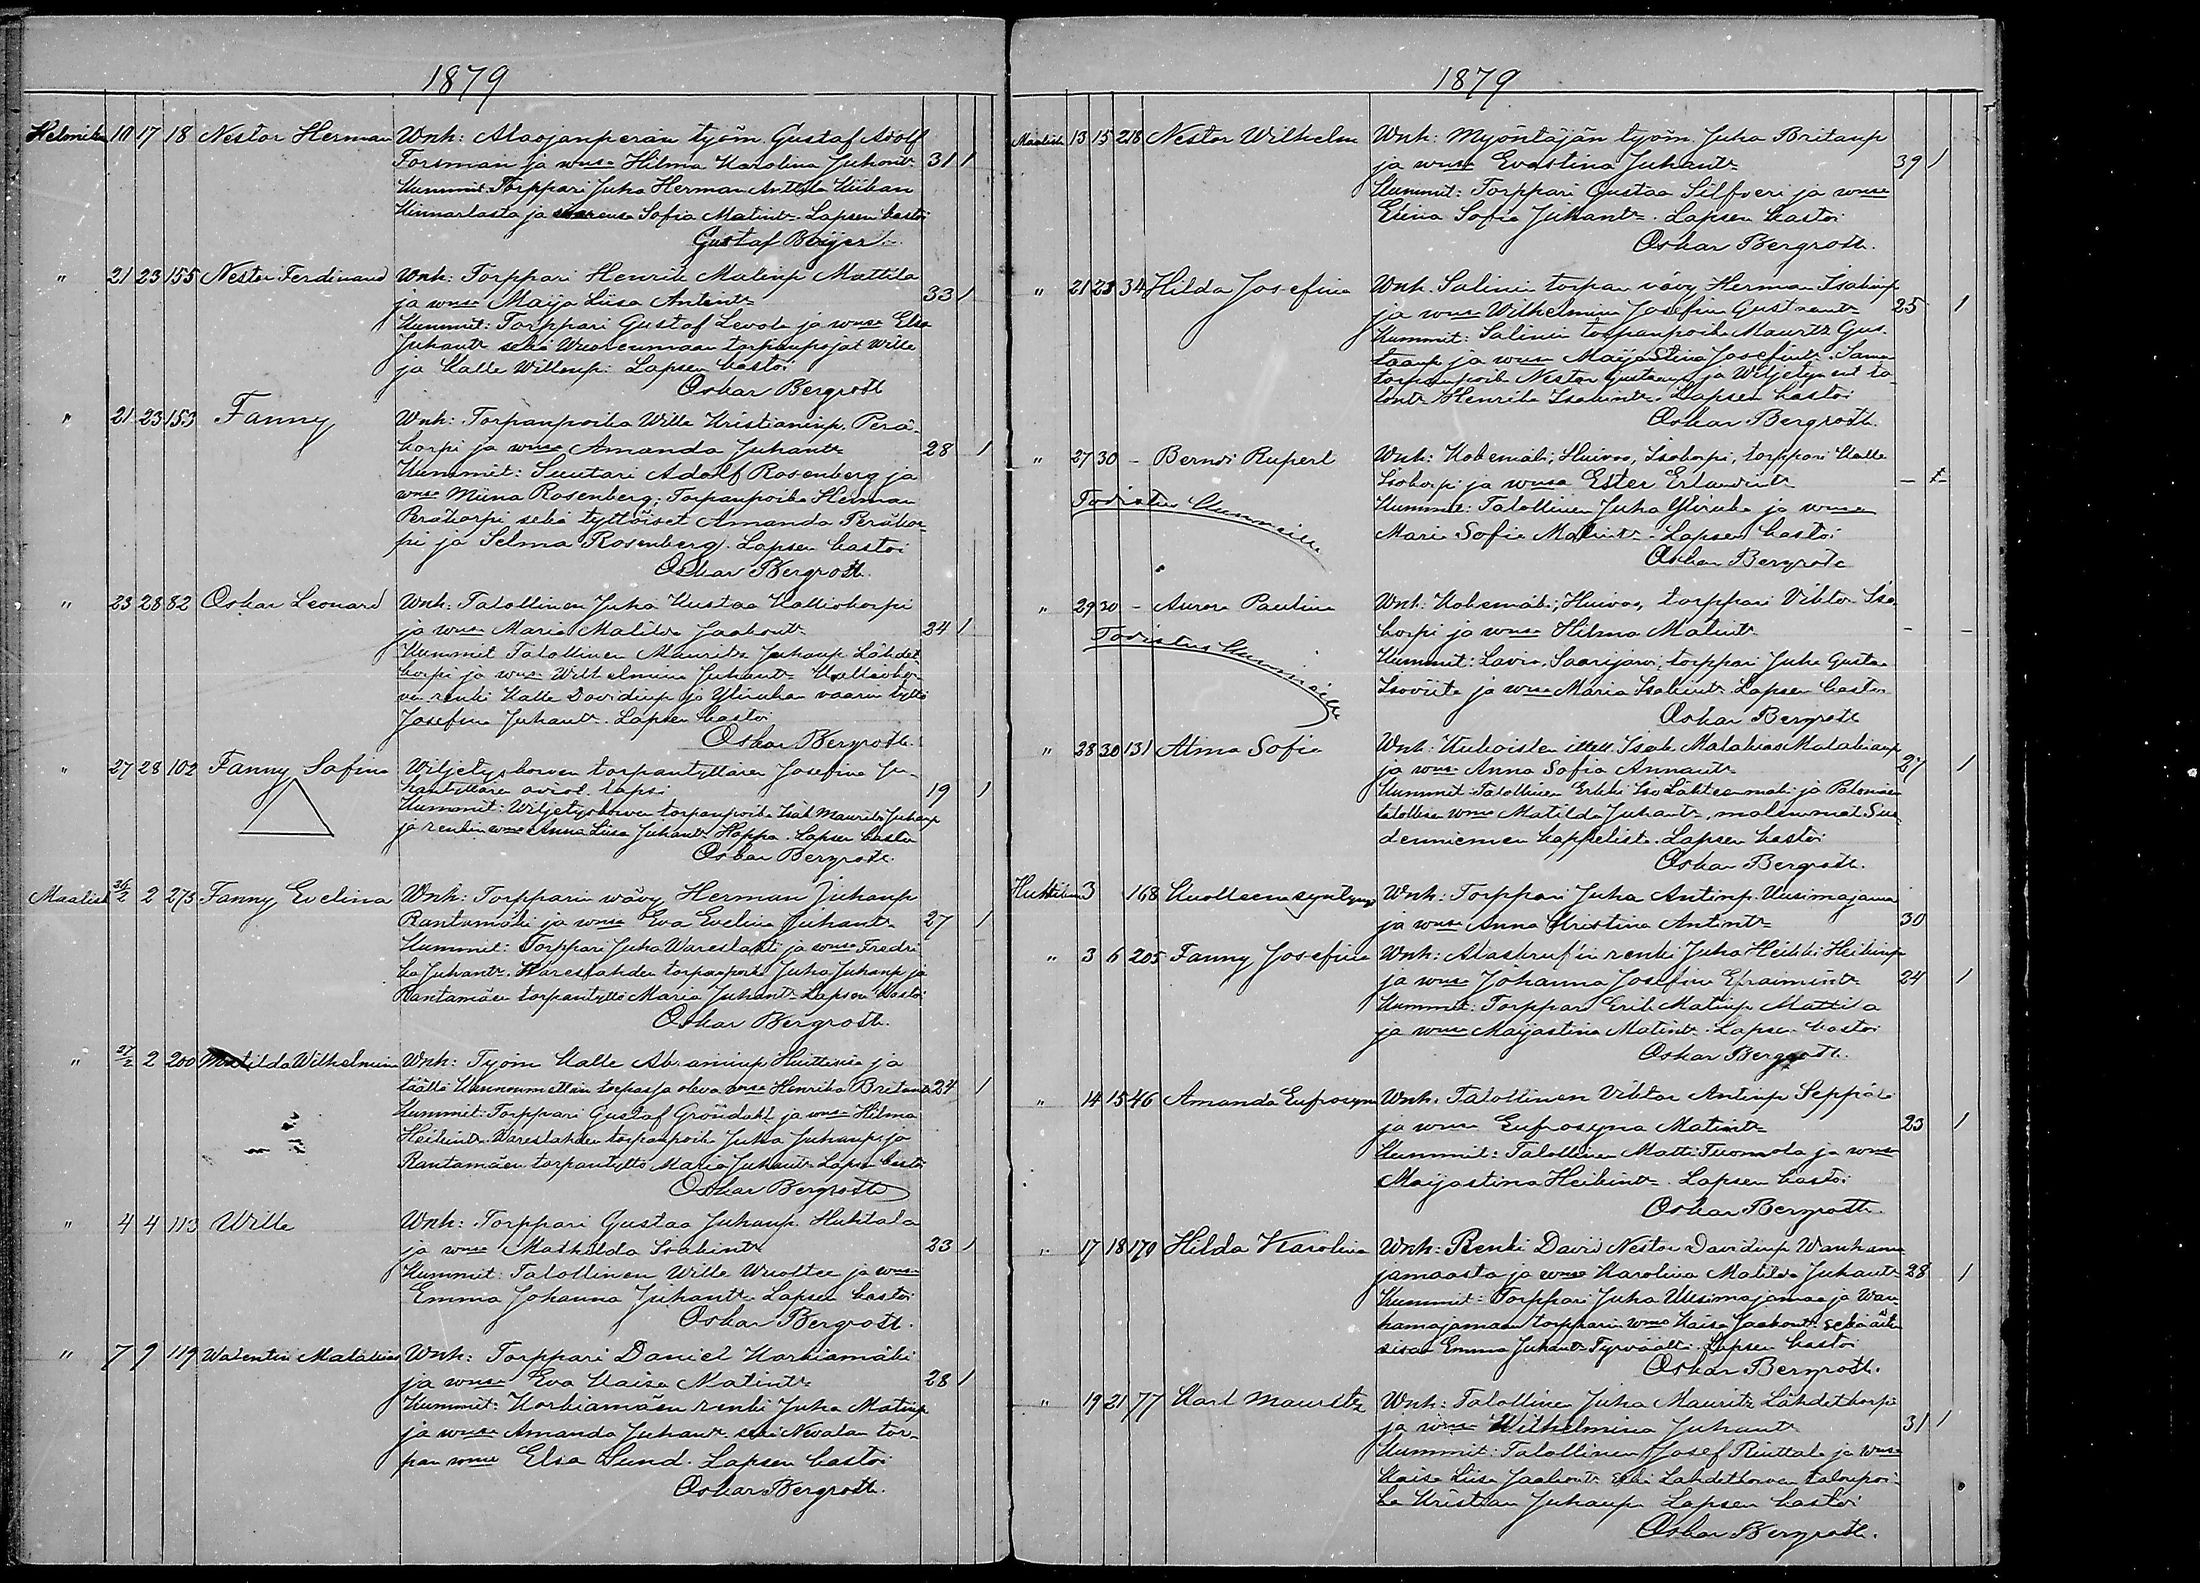 1879
Helmik. 10 17 18 Nestor Herman Wnh: Alaojanperän työm. Gustaf Adolf
Forsman ja wmsa Hilma Karolina Juhontr 31 1
Kummit: Torppari Juha Herman Anttila Kiikan
Kinnarlasta ja sisarensa Sofia Matintr. Lapsen kastoi
Gustaf Beijer.
" 21 23 155 Nestor Ferdinand Wnh: Torppari Henrik Matinp Mattila
ja wmsa Maija Liisa Antintr 33 1
Kummit: Torppari Gustaf Levola ja wmsa Elsa
Juhantr sekä torpanpojat Wille
ja Kalle Willenp. Lapsen kastoi
Oskar Bergroth
" 21 23 153 Fanny Wnh: Torpanpoika Wille Kristianinp. Perä-
korpi ja wmsa Amanda Juhantr 28 1
Kummit: Suutari Adolf Rosenberg ja
wmsa Miina Rosenberg; Torpanpoika Heiman
Peräkorpi sekä tyttäiset Amanda Peräkor
pi ja Selma Rosenberg. Lapsen kastoi
Oskar Bergroth.
" 23 28 82 Oskar Leonard Wnh: Talollinen Juha Kustaa Kalliokorpi
ja wmsa Maria Matilda Jaakontr 24 1
Kummit Talollinen Mauritz Juhanp Lähdet
korpi ja wmsa Wilhelmina Juhantr Kalliokor
ven renki Kalle Davidinp ja Ylinukan vaarin tyttö
Josefina Juhantr. Lapsen kastoi
Oskar Bergroth.
" 27 28 102 Fanny Safina Wiljetyskorven torpantyttären Josefina Ju-
hantyttären aviot. lapsi 19 1
Kummit: Wiljetyskorven torpanpoika Isak Maurits Juhanp
ja renkin wmo Anna Liisa Juhantr Hoppa. Lapsen kastoi
Oskar Bergroth.
Maalisk 26/2 2 275 Fanny Evelina Wnh: Torpparin wävy Herman Juhanp
Rantamäki ja wmsa Eva Evelina Juhantr 27 1
Kummit: Torppari Juha Wareslahti ja wmsa Fredri
ka Juhantr. Wareslahden torpanpoika Juha Juhanp ja
Rantamäen torpantyttö Maria Juhantr Lapsen kastoi
Oskar Bergroth.
" 27/2 2 200 Matilda Wilhelmina Wnh: Työm Kalle Huittisista ja
täällä torpassa oleva wmsa Henrika Britantr 24 1
Kummit: Torppari Gustaf Gröndahl ja wmsa Hilma
Heikintr. Wareslahden torpanpoika Juha Juhanp. ja
Rantamäen torpantyttö Maria Juhantr Lapsen kastoi
Oskar Bergroth
" 4 4 113 Wille Wnh: Torppari Gustaa Juhanp. Huhtala
ja wmsa Mathilda Isakintr 23 1
Kummit: Talollinen Wille Wuoltee ja wmsa
Emma Johanna Juhantr. Lapsen kastoi
Oskar Bergroth.
" 7 9 119 Walentin Matatias Wnh: Torppari Daniel Korkiamäki
ja wmsa Eva Kaisa Matintr 28 1
Kummit: Korkiamäen renki Juha Matinp
ja wmsa Amanda Juhantr sekä Nevalan tor-
pan wmo Elsa Sund. Lapsen kastoi
Oskar Bergroth.
1879
Maalisk 13 15 218 Nestor Wilhelm Wnh: Myöntäjän työm. Juha Britanp
ja wmsa Evastina Juhantr 39 1
Kummit: Torppari Gustaa Silfveri ja wmsa
Elena Sofia Juhantr. Lapsen kastoi
Oskar Bergroth.
" 21 23 34 Hilda Josefina Wnh. Salinin torpan vävy Herman Isakinp
ja wmsa Wilhelmina Josefina Gustaantr 25 1
Kummit: Salinin torpanpoika Mauritz Gus
taanp ja wmsa Maija Stina Josefintr. Saman
torpanpoika Nestor Gustaanp ja Wiljetyn
Henrika Isakintr. Lapsen kastoi
Oskar Bergroth.
" 27 30 - Berndt Rupert Wnh: Kokemäki, Kuivas, Isokorpi, torppari Kalle
Isokorpi ja wmsa Ester Erlandintr - t-
Todistus Kummeista Kummit: Talollinen Juha Ylinuka ja wmsa
Maria Sofia Matintr. Lapsen kastoi
Oskar Bergroth
" 29 30 - Aurora Paulina Wnh: Kokemäki, Kuivas, torppari Viktor Iso
korpi ja wmsa Hilma Matintr - -
Todistus Kummeista Kummit: Lavia, Saarijärvi, torppari Juha Gustaa
Isoviita ja wmsa Maria Isakintr. Lapsen kastoi
Oskar Bergroth
" 28 30 131 Alma Sofia Wnh: Kukoisten itsell. Isak Matatias Matatianp
ja wmsa Anna Sofia Annantr 27 1
Kummit Talollinen Erkki Iso Lähteenmäki ja
talollisen wmo Matilda Juhantr, molemmat Suo
denniemen kappelista. Lapsen kastoi
Oskar Bergroth.
Huhtikuu 3 168 Kuolleena syntynyt Wnh: Torppari Juha Antinp. Uusimajamaa
ja wmsa Anna Kristina Antintr 30
" 3 6 205 Fanny Josefina Wnh: Alastruf'in renki Juha Heikki Heikinp
ja wmsa Johanna Josefina Efraimintr 24 1
Kummit: Torppari Erik Matinp Mattila
ja wmsa Maijastina Matintr. Lapsen kastoi
Oskar Bergroth.
" 14 15 46 Amanda Eufrosyna Wnh. Talollinen Viktor Antinp Seppälä
ja wmsa Eufrosyna Matintr 23 1
Kummit: Talollinen Matti Tuomola ja wmsa
Maijastina Heikintr. Lapsen kastoi
Oskar Bergroth.
" 17 18 170 Hilda Karolina Wnh: Renki David Nestor Davidinp Wanhassa
jamaasta ja wmsa Karolina Matilda Juhantr 28 1
Kummit: Torppari Juha Uusimajamaa ja Wan
hamajamaan torpparin wmo Kaisa Jaakontr sekä äitin
sisar Emma Juhantr Tyrväältä. Lapsen kastoi
Oskar Bergroth.
" 19 21 77 Karl Mauritz Wnh: Talollinen Juha Mauritz Lähdetkorpi
ja wmsa Wilhelmina Juhantr 31 1
Kummit: Talollinen Josef Rinttala ja wmsa
Kaisa Liisa Jaakontr sekä Lähdetkorven talonpoi
ka Kristian Juhanp. Lapsen kastoi
Oskar Bergroth.